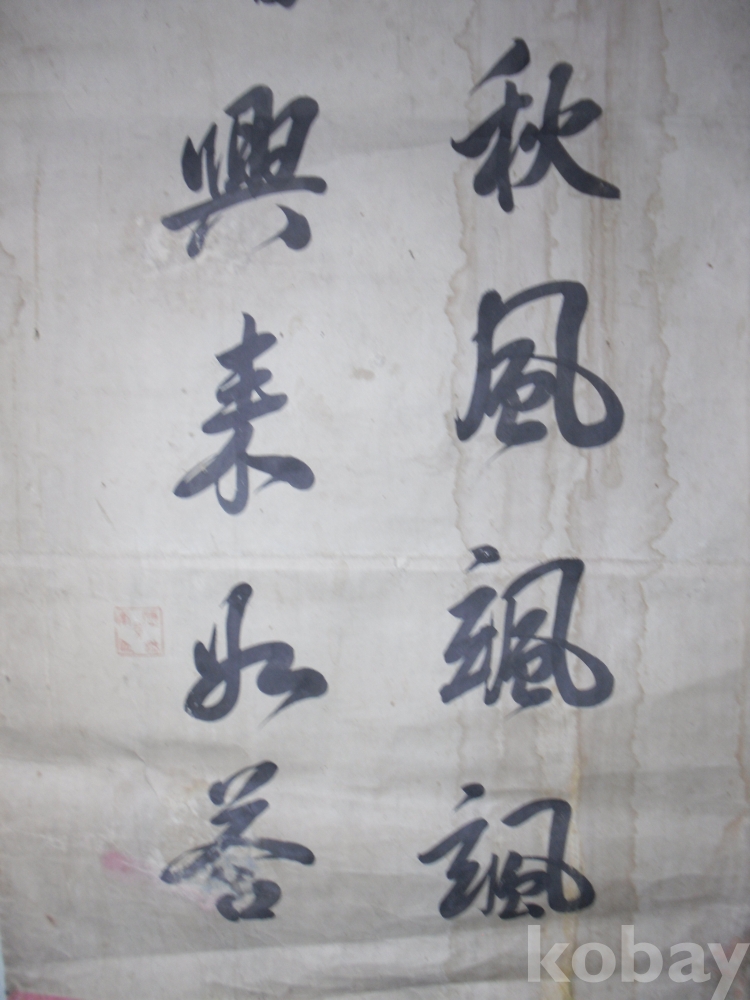 秋風颯颯
興来如答
kobay